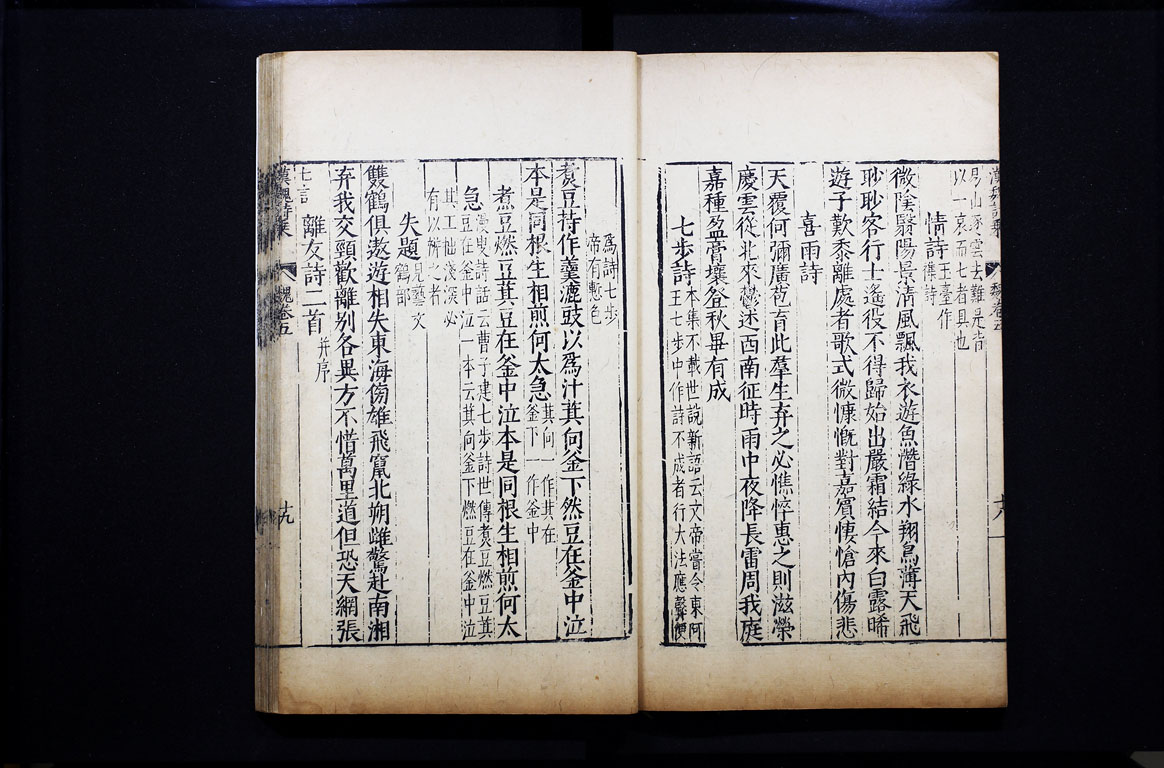 漢魏詩乘
魏卷五
十八
易山逐雲去難是皆
以一哀而七者具也
情詩
玉臺作
雜詩
微陰翳陽景清風飄我衣遊魚潛綠水翔鳥薄天飛
眇眇客行士遙役不得歸始出嚴霜結今來白露晞
遊子歎黍離處者歌式微慷慨對嘉賓悽愴內傷悲
喜雨詩
天覆何彌廣苞育此羣生弃之必憔悴惠之則滋榮
慶雲從北來鬱述西南征時雨中夜降長雷周我庭
嘉種盈膏壤登秋畢有成
七步詩
本集不載世說新語云文帝嘗令東阿
王七步中作詩不成者行大法應聲便
爲詩七步
帝有慙色
煑豆持作羹漉豉以爲汁萁向釜下然豆在釜中泣
本是同根生相煎何太急
萁向一作萁在
釜下一作釜中
煮豆燃豆萁豆在釜中泣本是同根生相煎何太
急
漫叟詩話云曹子建七步詩世傳煮豆燃豆萁
豆在釜中泣一本云萁向釜下燃豆在釜中泣
其工拙淺深必
有以辨之者
失題
見藝文
鶴部
雙鶴俱遨遊相失東海傍雄飛竄北朔雌驚赴南湘
弃我交頸歡離別各異方不惜萬里道但恐天網張
七言
離友詩二首
并序
漢魏詩乘
魏卷五
十九